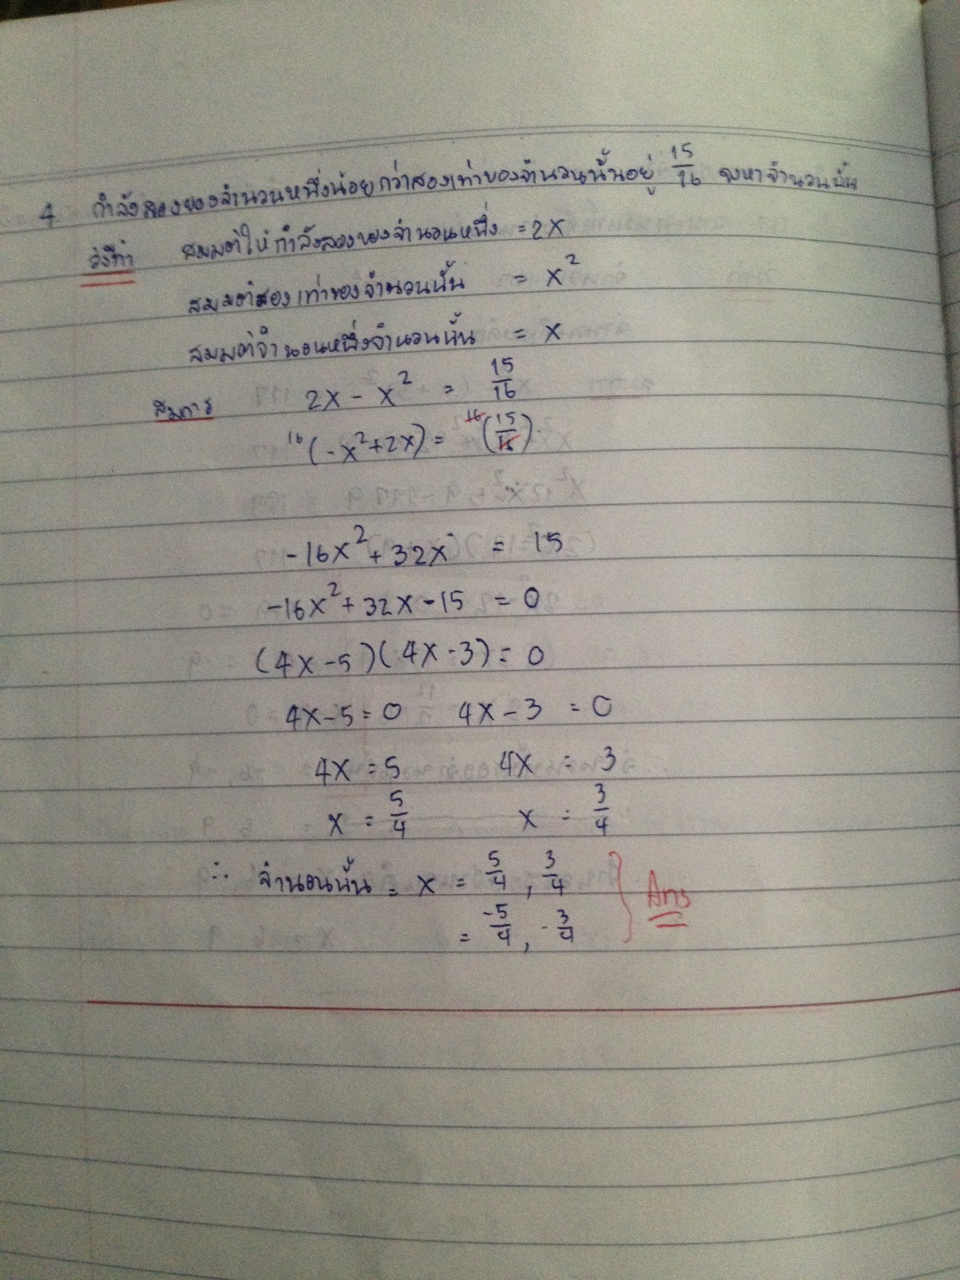 4. กำลังสองของจำนวนหนึ่งน้อยกว่าสองเท่าของจำนวนนั้นอยู่ 15/16 จงหาจำนวนนั้น
วิธีทำ สมมติให้กำลังสองของจำนวนหนึ่ง = 2x
สมมติสองเท่าของจำนวนนั้น = x²
สมมติจำนวนหนึ่งจำนวนนั้น = x
สมการ 2x - x² = 15/16
16(-x²+2x) = 16(15/16)
-16x² + 32x = 15
-16x² + 32x - 15 = 0
(4x-5)(4x-3) = 0
4x-5 = 0 4x-3 = 0
4x = 5 4x = 3
x = 5/4 x = 3/4
∴ จำนวนนั้น = x = 5/4, 3/4
= -5/4, -3/4
Ans